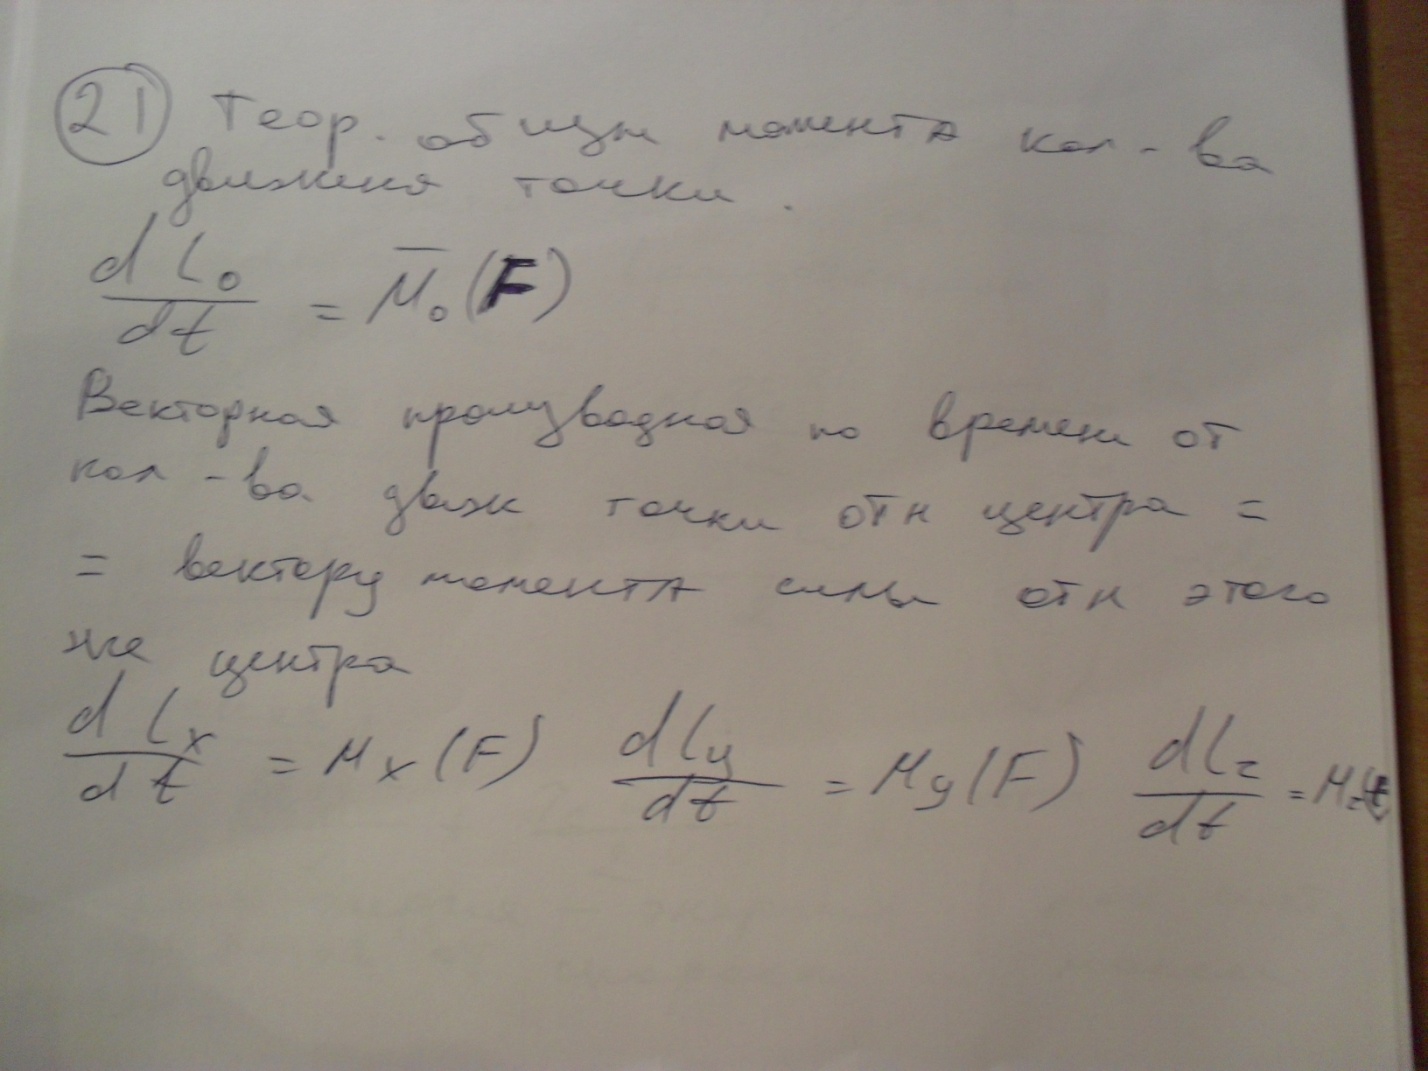 21 Теор. об изм момента кол-ва
движения точки.
dL₀/dt = M̅₀(F)
Векторная производная по времени от
кол-ва движ точки отн центра =
= вектору момента силы отн этого
же центра
dLx/dt = Mx(F) dLy/dt = My(F) dLz/dt = Mz(F)